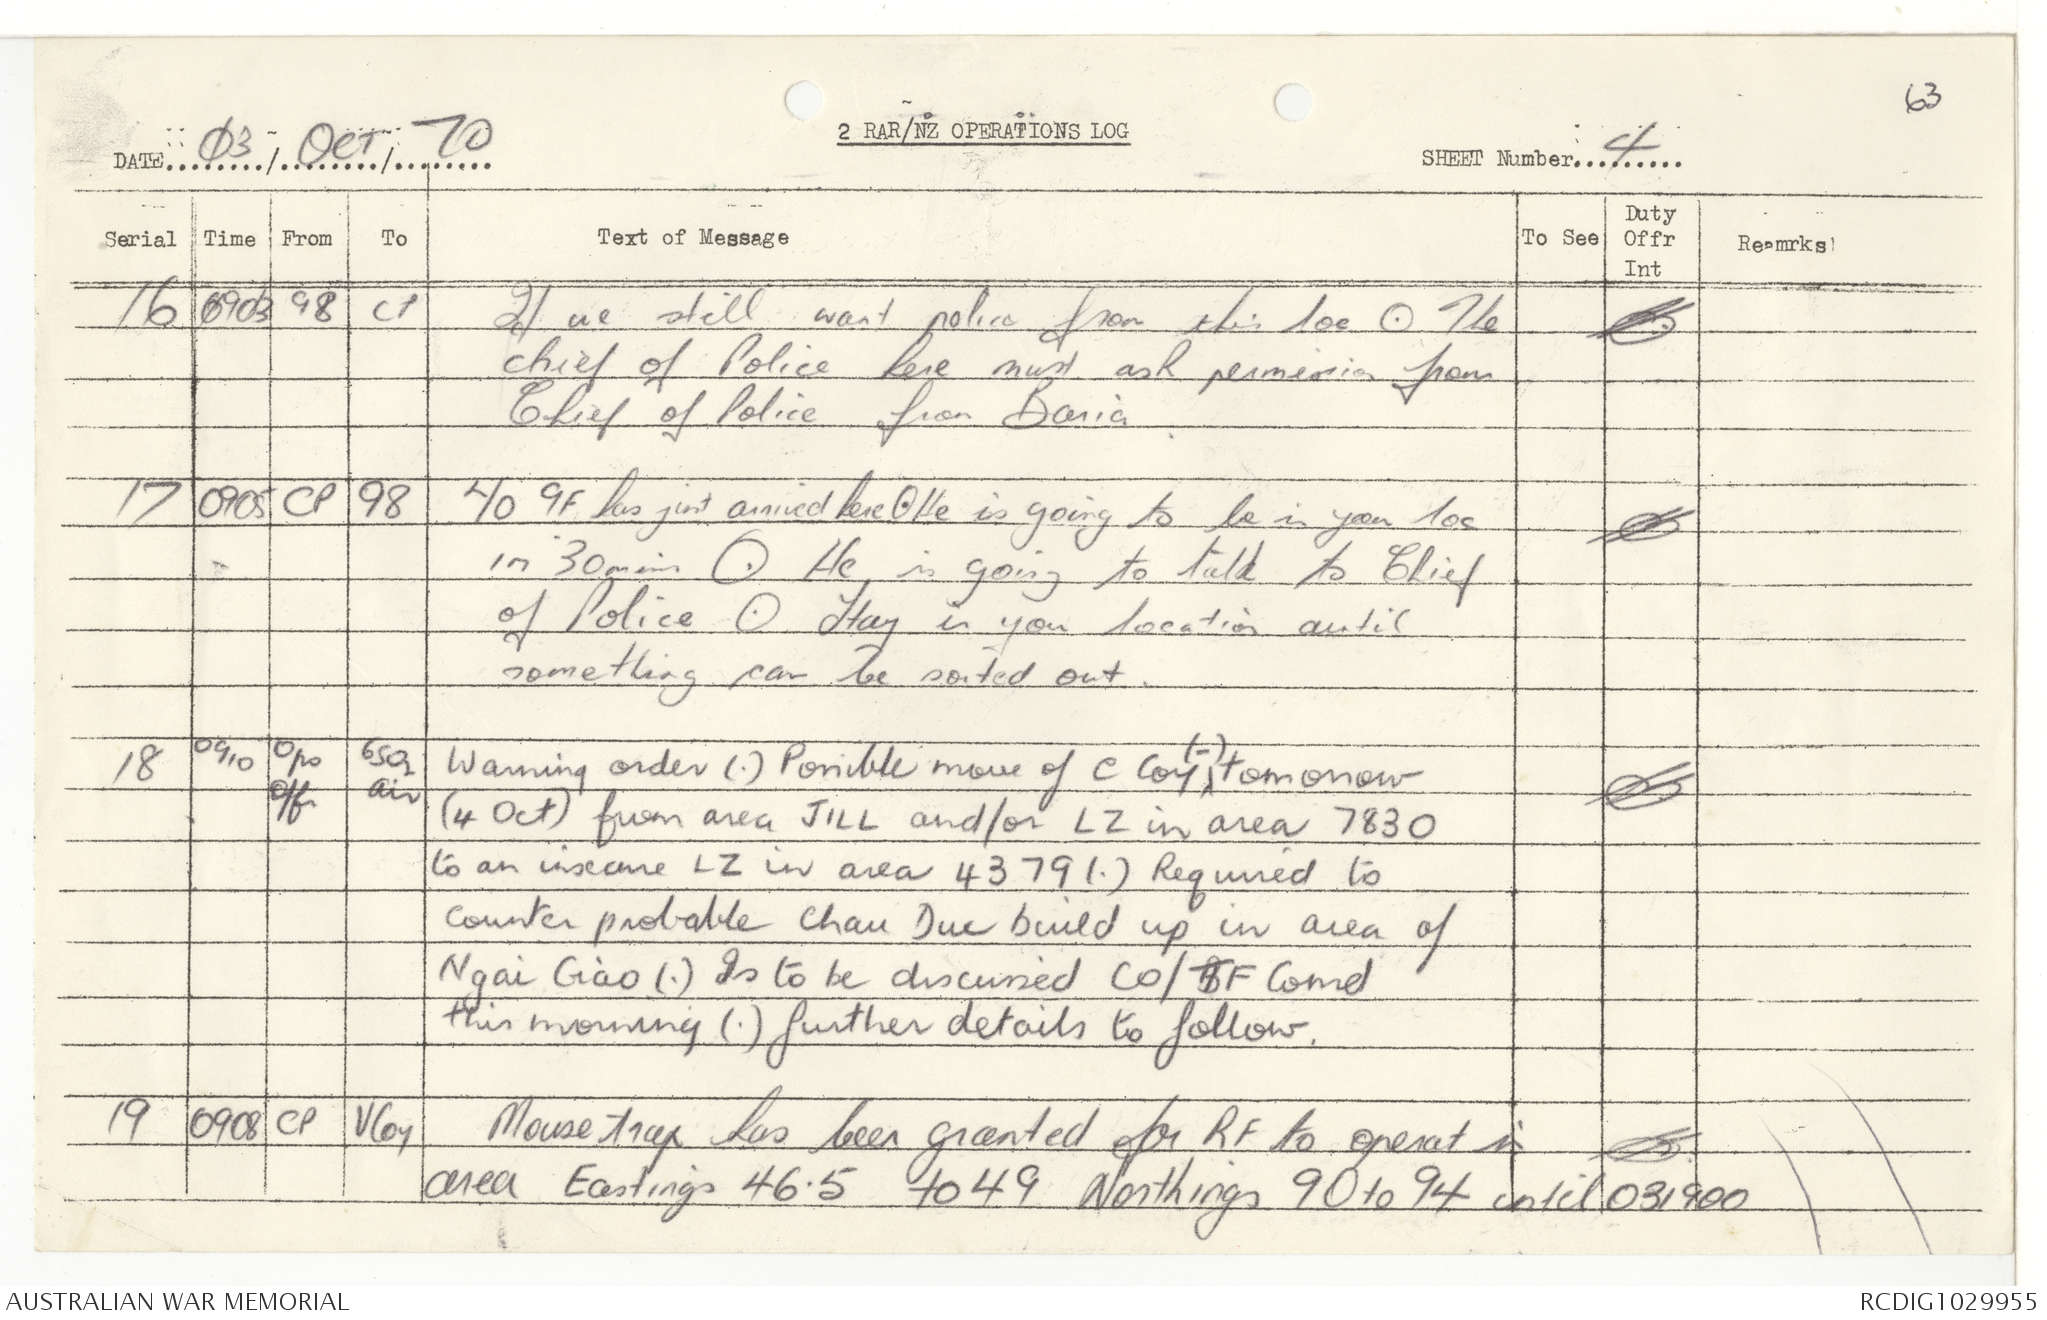 63
DATE 03 / Oct / 70
2 RAR/NZ OPERATIONS LOG
SHEET Number 4
Serial Time From To Text of Message To See Duty Offr Int Reamrks
16 0903 98 CP If we still want police from this loc ⊙ The
chief of Police here must ask permission from
Chief of Police from Baria
17 0905 CP 98 L/O 9F has just arrived here ⊙ He is going to be in your loc
in 30 mins ⊙ He is going to talk to Chief
of Police ⊙ Stay in your location until
something can be sorted out.
18 0910 Ops Offr GSO2 Air Warning order (.) Possible move of C Coy (-) tomorrow
(4 Oct) from area JILL and/or LZ in area 7830
to an insecure LZ in area 4379 (.) Required to
counter probable Chau Duc build up in area of
Ngai Giao (.) Is to be discussed CO/TF Comd
this morning (.) further details to follow.
19 0908 CP V Coy Mousetrap has been granted for RF to operat in
area Eastings 46.5 to 49 Northings 90 to 94 until 031900
AUSTRALIAN WAR MEMORIAL
RCDIG1029955